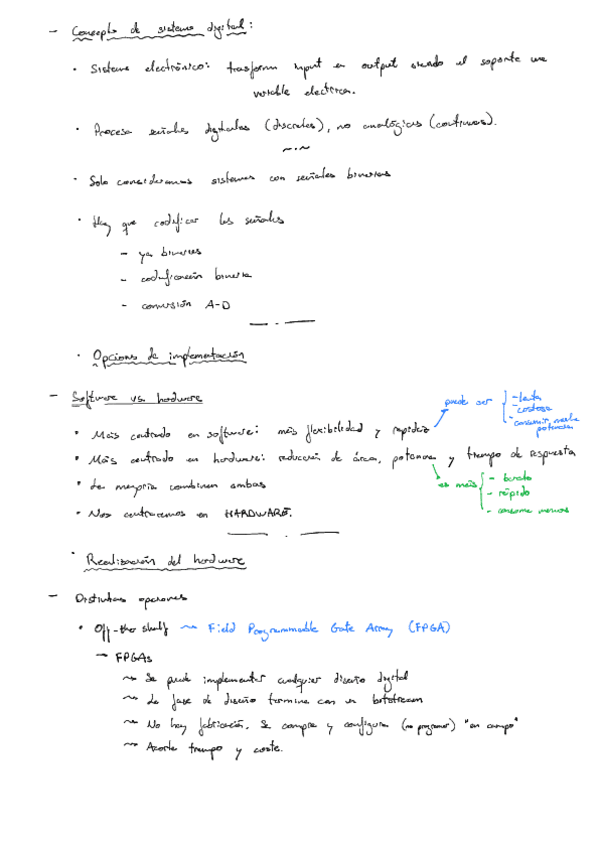 - Concepto de sistema digital:
· Sistema electrónico: trasforma input en output siendo el soporte una
variable electrica.
· Procesa señales digitales (discretas), no analógicas (continuas).
· Solo consideramos sistemas con señales binarias
· Hay que codificar las señales
- ya binarias
- codificación binaria
- conversión A-D
· Opciones de implementación
- Software vs. hardware
• Más centrado en software: más flexibilidad y rapidez
puede ser
- lenta
- costosa
- consumir mucha
potencia
• Más centrado en hardware: reducción de área, potencia y tiempo de respuesta
es más
- barato
- rápido
- consume menos
• La mayoría combinan ambas
• Nos centraremos en HARDWARE.
· Realización del hardware
- Distintas opciones
• Off-the shelf ~ Field Programmable Gate Array (FPGA)
- FPGAs
~ Se puede implementar cualquier diseño digital
~ La fase de diseño termina con un bitstream
~ No hay fabricación, se compra y configura (no programar) "en campo"
~ Acorta tiempo y coste.